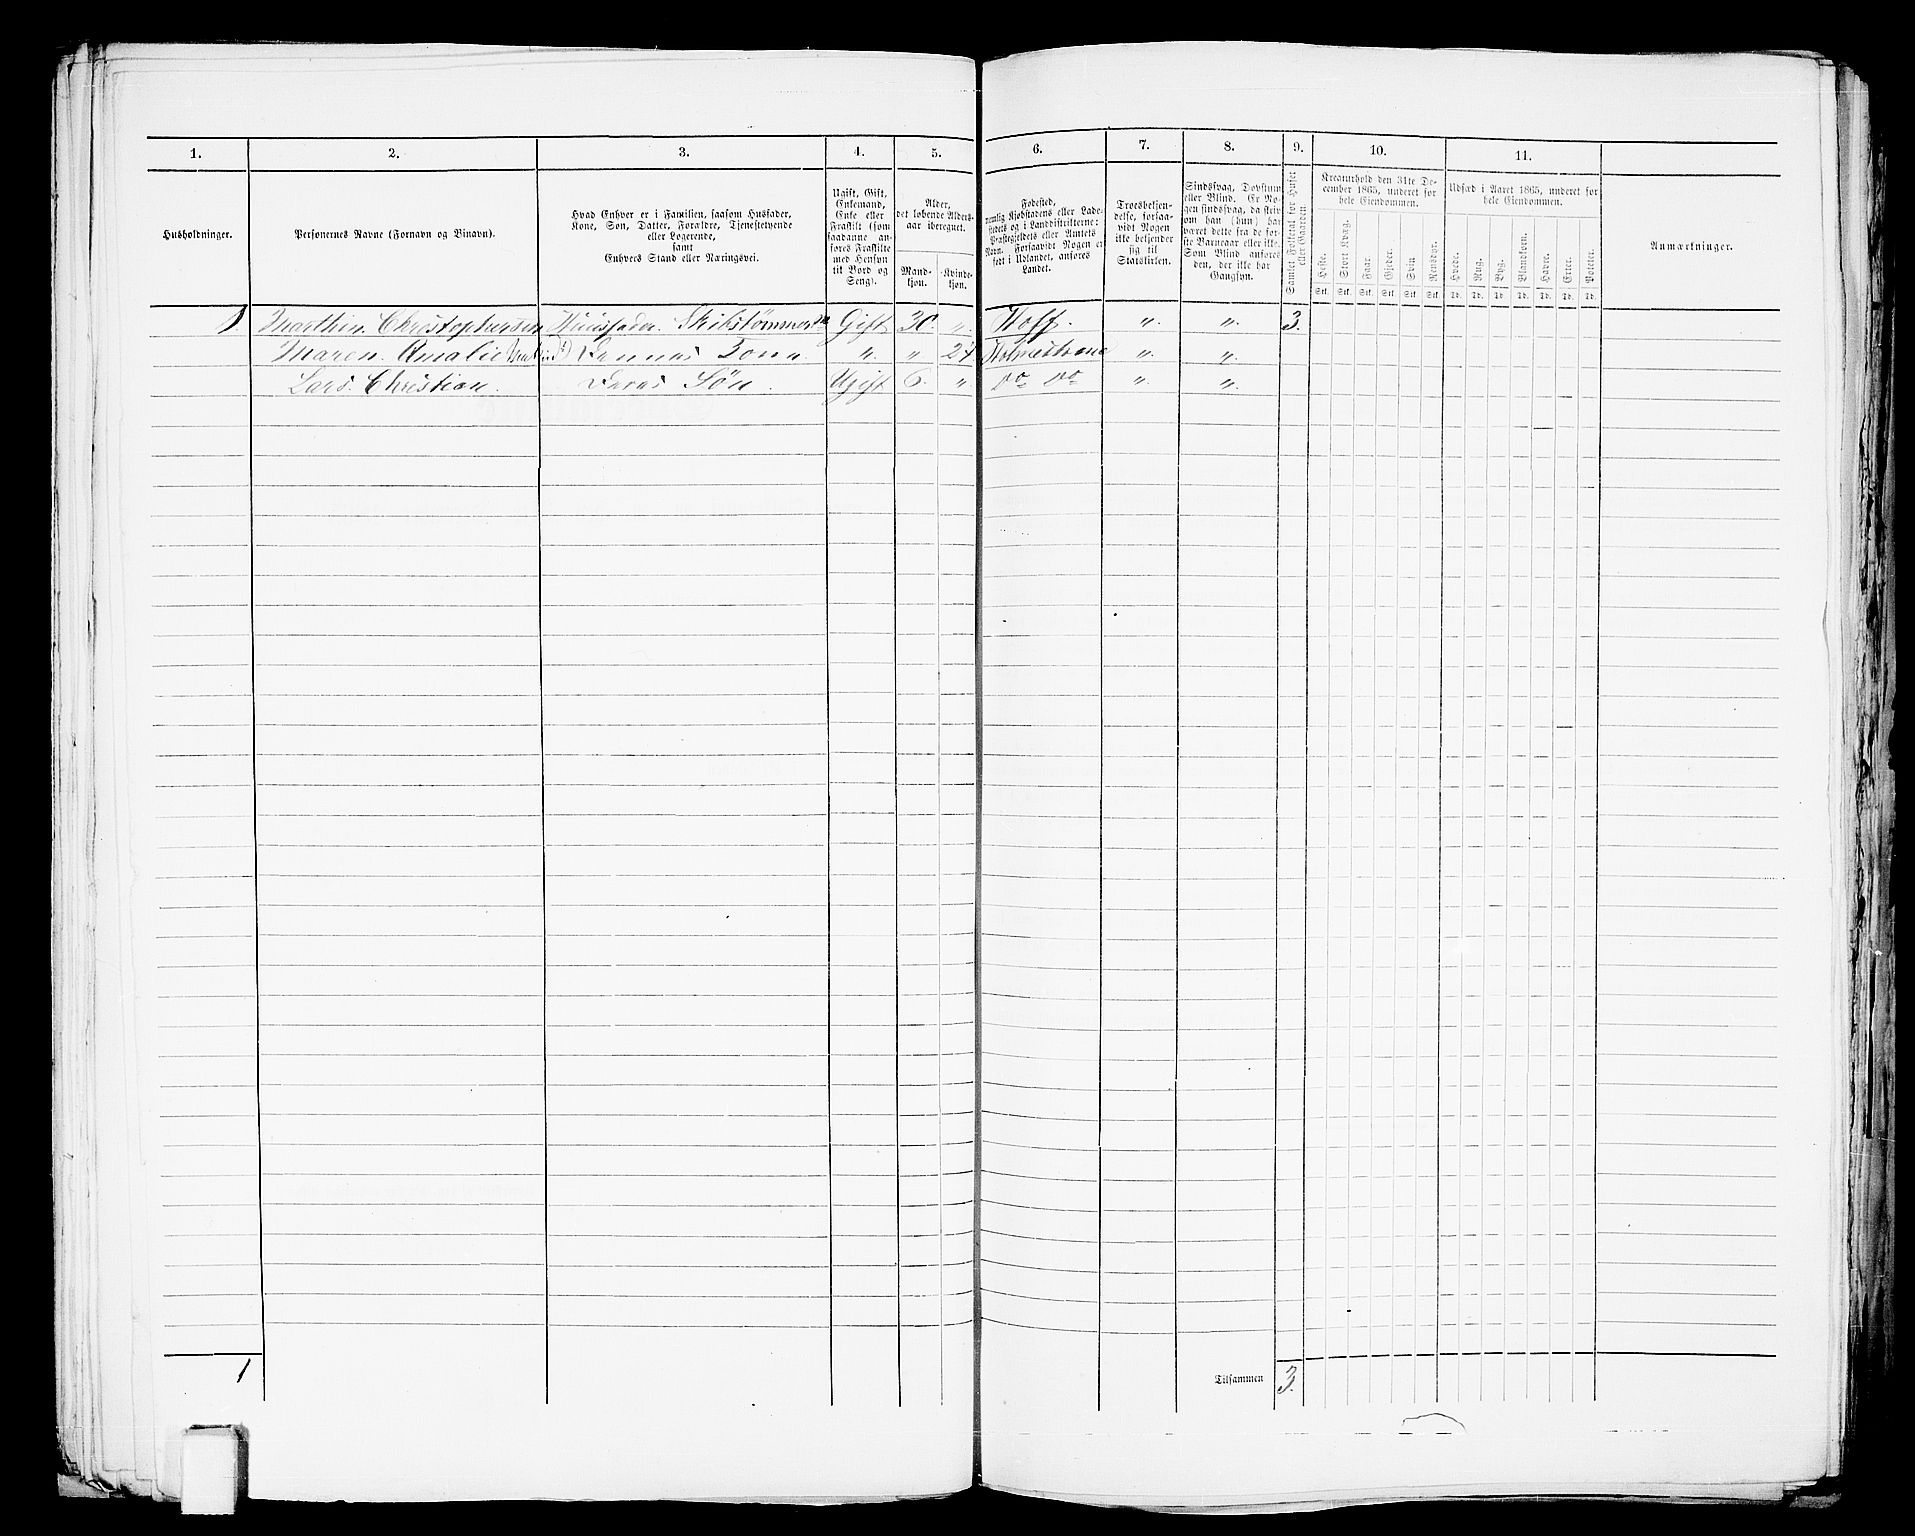 1. 2. 3. 4. 5. 6. 7. 8. 9. 10. 11.
Husholdninger.
Personernes Navne (Fornavn og Binavn).
Hvad Enhver er i Familien, saasom Husfader,
Kone, Søn, Datter, Forældre, Tjenestetyende
eller Logerende,
samt
Enhvers Stand eller Næringsvei.
Ugift, Gift,
Enkemand,
Enke eller
Fraskilt (som
saadanne an-
føres Fraskilte
med Hensyn
til Bord og
Seng).
Alder,
det løbende Alders-
aar iberegnet.
Mand-
kjøn.
Kvinde-
kjøn.
Fødested,
nemlig Kjøbstadens eller Lade-
stedets og i Landdistrikterne:
Præstegjeldets eller Amtets
Navn. Forsaavidt Nogen er
født i Udlandet, anføres
Landet.
Troesbekjen-
delse, forsaa-
vidt Nogen
ikke bekjender
sig til
Statskirken.
Sindssvag, Døvstum
eller Blind. Er No-
gen sindssvag, da skri-
ves om han (hun) har
været dette fra de før-
ste Barneaar eller ikke.
Som Blind anføres
den, der ikke har
Gangsyn.
Samlet Folketal for Huset
eller Gaarden.
Kreaturhold den 31te De-
cember 1865, underet for
hele Eiendommen.
Heste. Stort Kvæg. Faar. Gjeder. Svin. Rensdyr.
Stk. Stk. Stk. Stk. Stk. Stk.
Udsæd i Aaret 1865, underet for
hele Eiendommen.
Hvede. Rug. Byg. Blandkorn. Havre. Erter. Poteter.
Td. Td. Td. Td. Td. Td. Td.
Anmærkninger.
1 Marthin Christophersen Huusfader. Skibstømmerm Gift 30. „ Hoff. „ „ 3.
Maren Amalie Kone „ „ 27 Holmestrand „ „
Lars Christian Søn Ugift 6. „ Do Do „ „
1
Tilsammen 3.